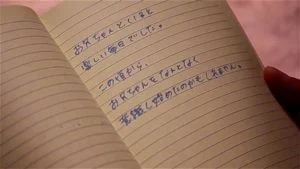 お兄ちゃんとくいると
楽しい毎日でした。
この頃から、
お兄ちゃんをなんとなく
意識し始めたのかもしれません。